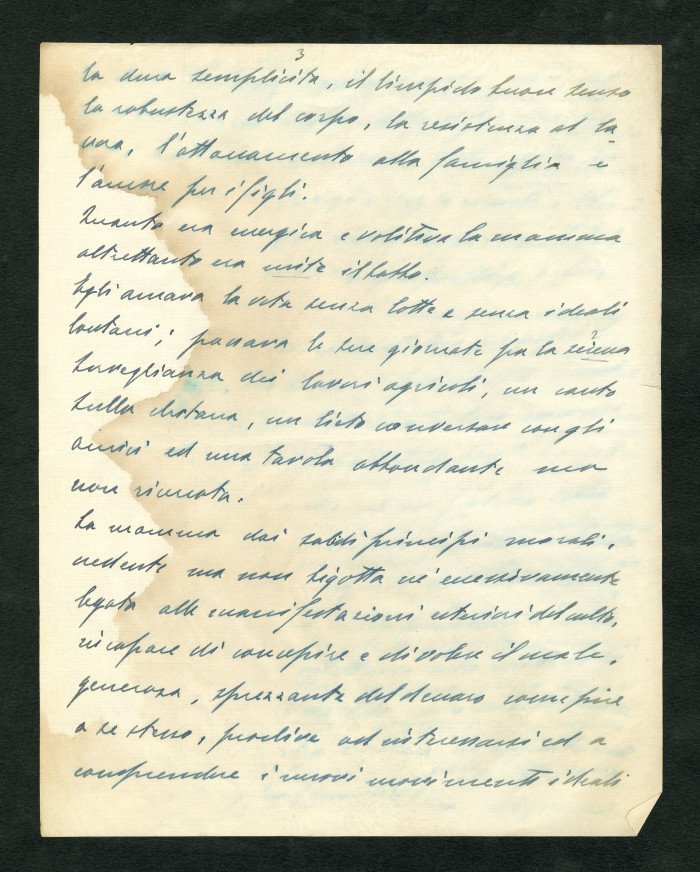 3
la dura semplicita, il limpido buon senso
la robustezza del corpo, la resistenza al la
voro, l'attaccamento alla famiglia e
l'amore per i figli.
Quanto era energica e volitiva la mamma
altrettanto era mite il babbo.
Egli amava la vita senza lotte e senza ideali
lontani; passava le sue giornate fra la serena
sorveglianza dei lavori agricoli, un canto
sulla chitarra, un lieto conversare con gli
amici ed una tavola abbondante ma
non
La mamma dai saldi principi morali,
credente ma non bigotta nè eccessivamente
legata alle manifestazioni esteriori del culto,
incapace di concepire e di volere il male,
generosa, sprezzante del denaro come fine
a se stesso, proclive ad interessarsi ed a
comprendere i nuovi movimenti ideali